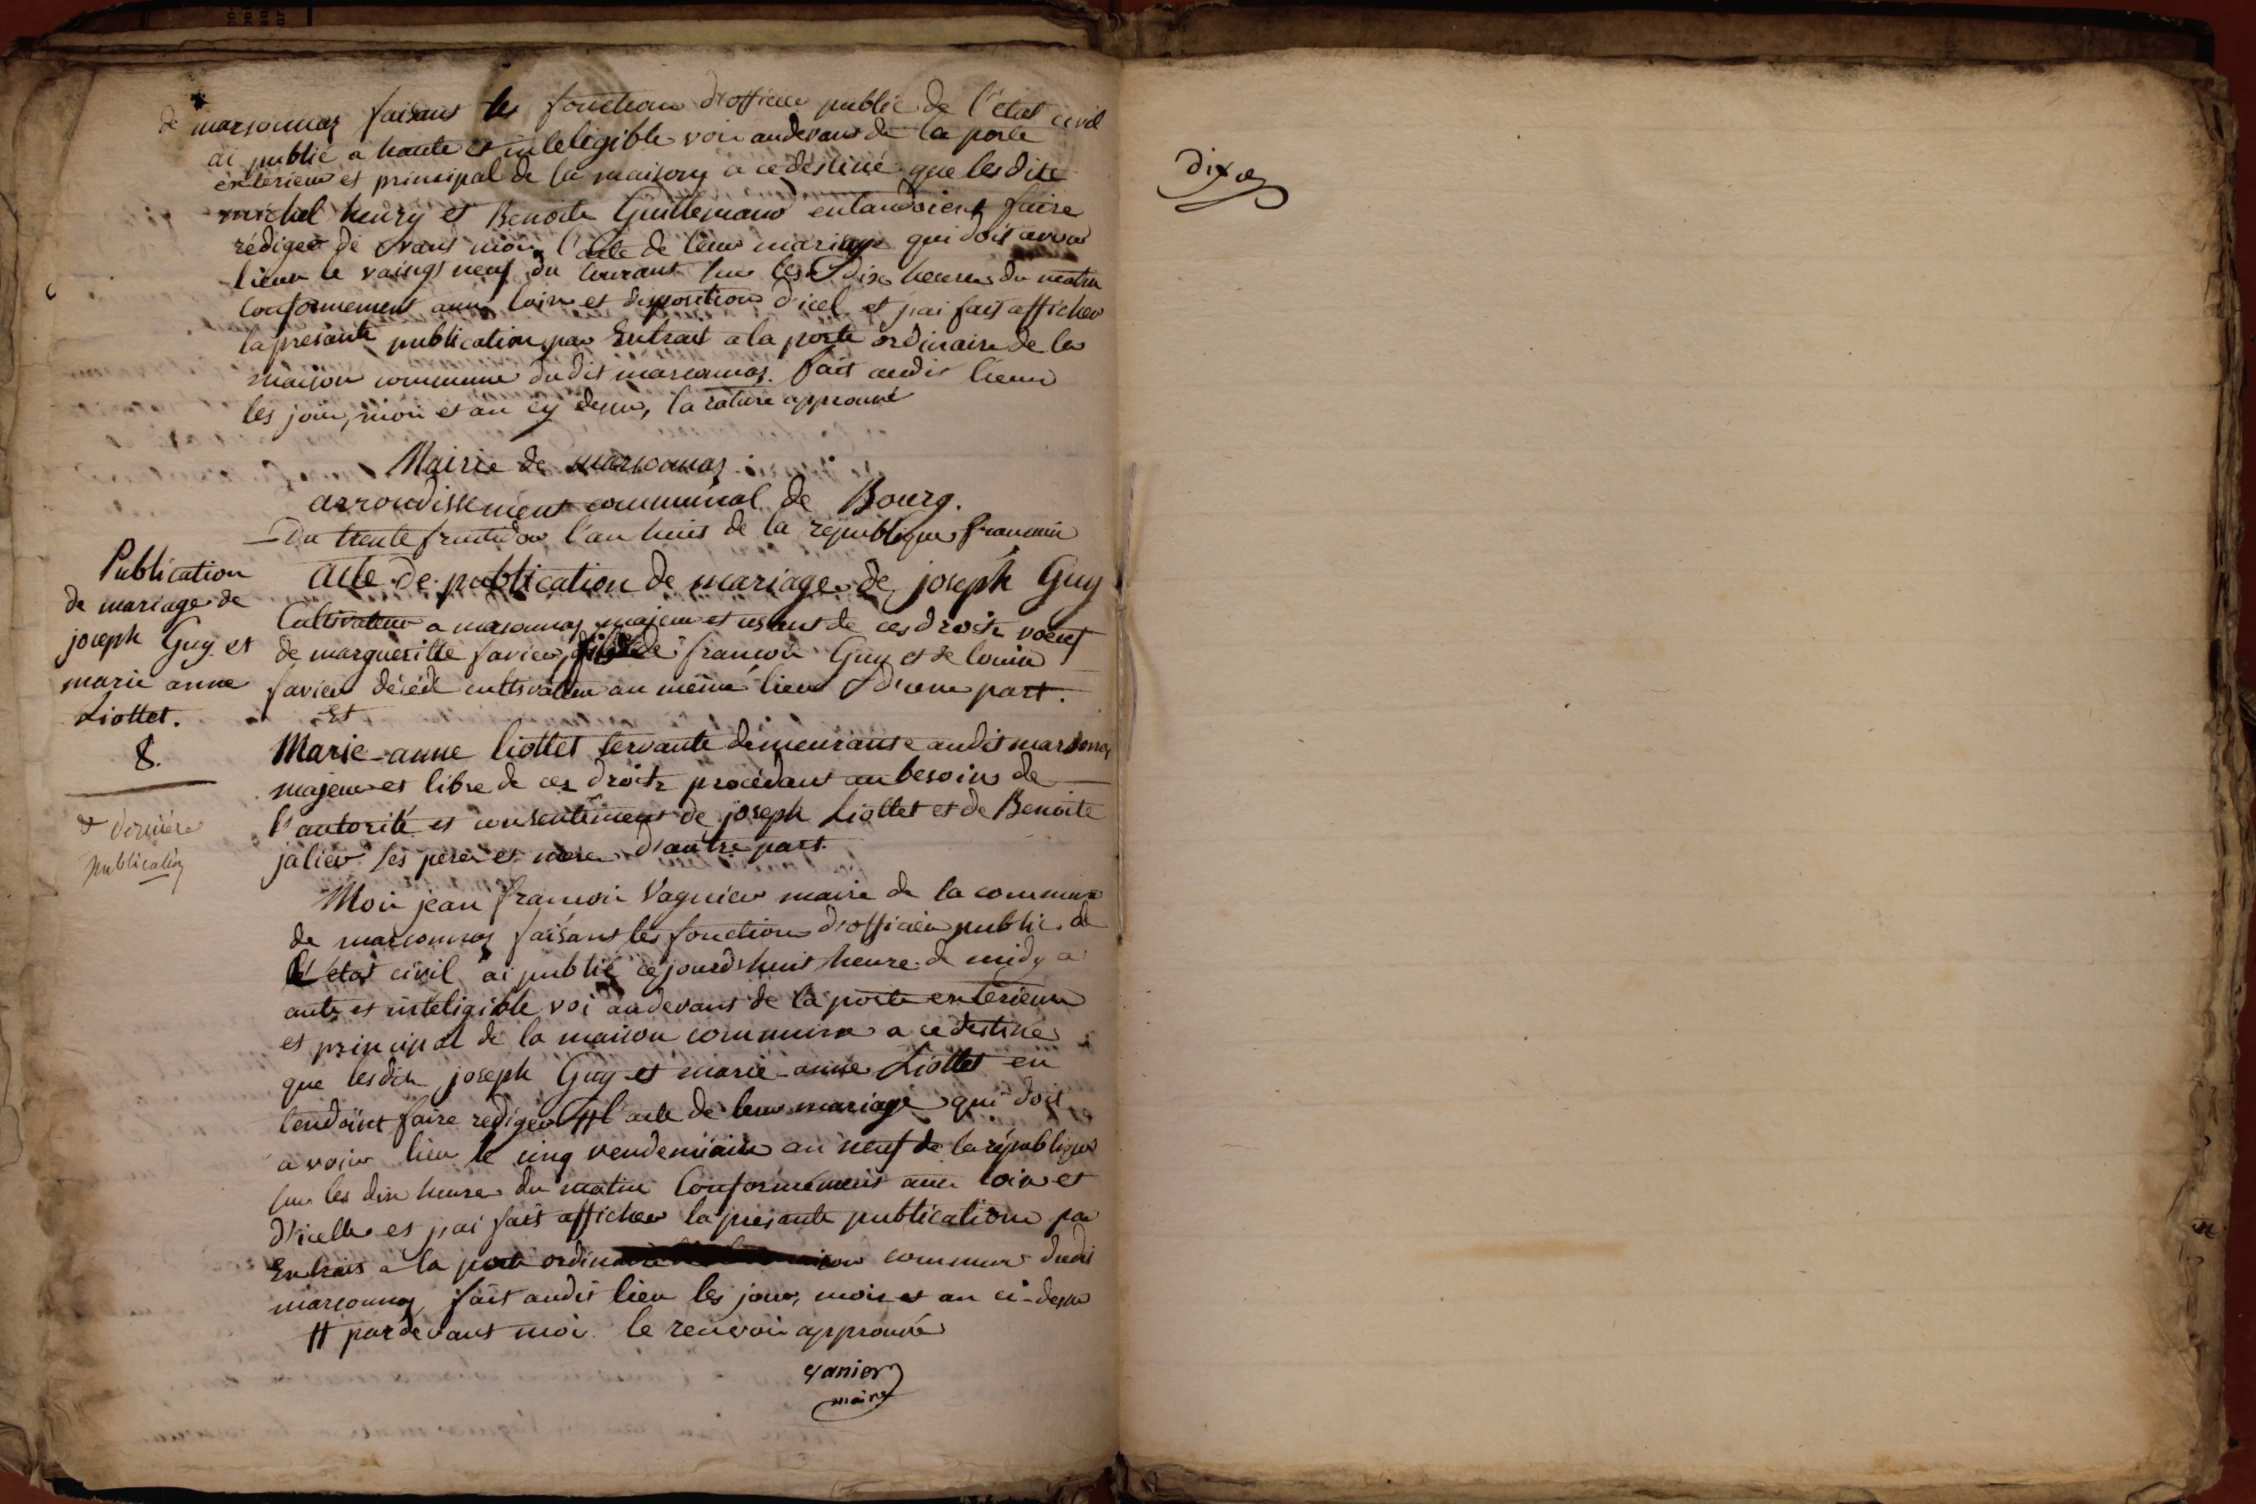 de marsonnas faisant les fonction d'officier public de l'état civil
ai publié a haute et inteligible voix audevant de la porte
exterieur et principal de la maison a ce destiné que lesdite
michel henry et Benoite Guillemaud entandoient faire
rédiger de vant moi l'acte de leur mariage qui doit avoir
lieux le vaingt neuf du courant sur les dix heures du matin
conformement aux loix et disposition d'icel et j'ai fait afficher
la presante publication par Extrait a la porte ordinaire de la
maison commune dudit marsonnas. fait audit lieux
les jour, moi et an cy desu, la rature approuvé
Mairie de marsonnas
arrondissement communal de Bourg.
Du trente fructidor l'an huis de la republique francaise
Publication
de mariage de
joseph Guy et
marie anne
Liottet.
8.
& dernière
publication
acte de publication de mariage de joseph Guy
Cultivateur a marsonnas majeur et usant de ces droits voeuf
de margueritte favier, fils de francois Guy et de louise
favier décédé cultivateur au même lieux d'une part.
Et
Marie-anne liottet servante demeurante audit marsonnas
majeur et libre de ces droits procédant au besoins de
l'autorité et consentement de joseph Liottet et de Benoite
jalier ses pères et mere d'autre part.
Moi jean francois Vagnier maire de la commune
de marsonnas faisant les fonctions d'officier public de
l'état civil ai publié cejourd'huis heure de midy a
aute et inteligible voi audevant de la porte exterieure
et principal de la maison commune a ce destiné
que lesdits joseph Guy et marie-anne Liottet en
tendoint faire rediger # l'acte de leur mariage qui doit
avoir lieu le cinq vendemiaire an neuf de la république
sur les dix heures du matin Conformément aux loix et
d'icelle et j'ai fait afficher la presante publication par
Extrait a la porte ordinaire commune dudit
marsonnas, fait audit lieu les jour, mois et an ci-desu
# pardevant moi le renvoi approuvé
Vanier
maire
dixe